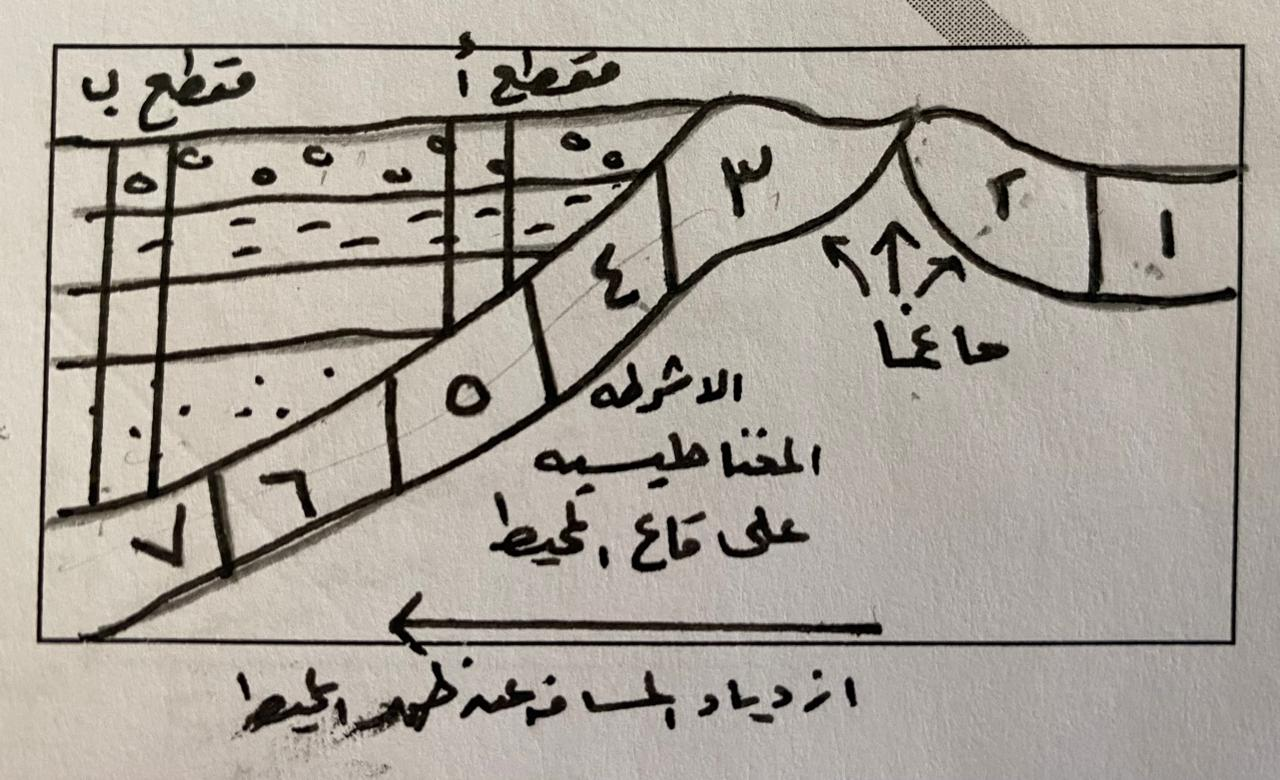 مقطع أ
مقطع ب
٣
٢
١
٤
ماغما
٥
الاشرطه
المغناطيسيه
على قاع المحيط
٦
٧
ازدياد المسافه عند ظهر المحيط